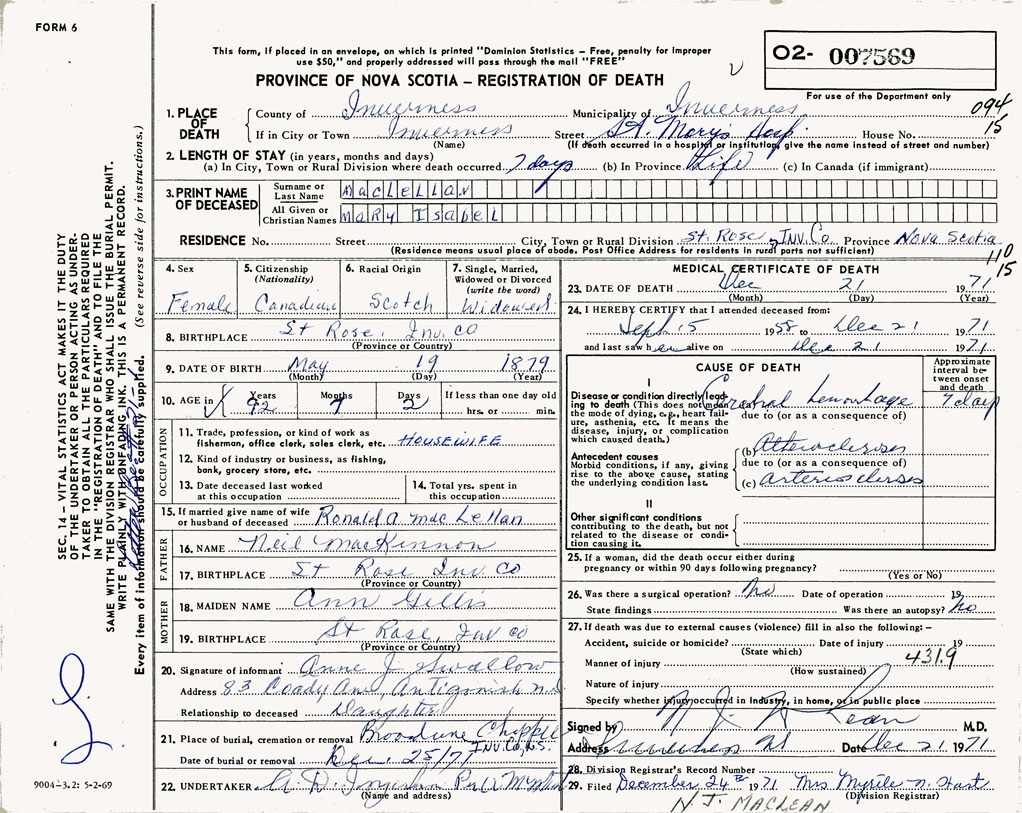 FORM 6
This form, if placed in an envelope, on which is printed "Dominion Statistics – Free, penalty for improper
use $50," and properly addressed will pass through the mail "FREE"
PROVINCE OF NOVA SCOTIA – REGISTRATION OF DEATH
02- 007569
For use of the Department only
094
15
1. PLACE OF DEATH
County of Inverness Municipality of Inverness
If in City or Town Inverness Street St. Mary's Hosp. House No.
(Name) (If death occurred in a hospital or institution, give the name instead of street and number)
2. LENGTH OF STAY (in years, months and days)
(a) In City, Town or Rural Division where death occurred 7 days (b) In Province Life (c) In Canada (if immigrant)
3. PRINT NAME OF DECEASED
Surname or Last Name MacLellan
All Given or Christian Names Mary Isabel
RESIDENCE No. Street City, Town or Rural Division St. Rose, Inv. Co. Province Nova Scotia
(Residence means usual place of abode. Post Office Address for residents in rural parts not sufficient)
110
15
4. Sex Female
5. Citizenship (Nationality) Canadian
6. Racial Origin Scotch
7. Single, Married, Widowed or Divorced (write the word) Widowed
8. BIRTHPLACE St Rose, Inv. Co
(Province or Country)
9. DATE OF BIRTH May 19 1879
(Month) (Day) (Year)
10. AGE in Years 92 Months 7 Days 2 If less than one day old hrs. or min.
OCCUPATION
11. Trade, profession, or kind of work as fisherman, office clerk, sales clerk, etc. Housewife
12. Kind of industry or business, as fishing, bank, grocery store, etc.
13. Date deceased last worked at this occupation
14. Total yrs. spent in this occupation
15. If married give name of wife or husband of deceased Ronald A. MacLellan
FATHER
16. NAME Neil MacKinnon
17. BIRTHPLACE St Rose Inv. Co
(Province or Country)
MOTHER
18. MAIDEN NAME Ann Gillis
19. BIRTHPLACE St Rose, Inv Co
(Province or Country)
20. Signature of informant Anne J Swallow
Address 83 Coady Ave, Antigonish N.S.
Relationship to deceased Daughter
21. Place of burial, cremation or removal Chappel
Inv. Co, N.S.
Date of burial or removal Dec. 25/71
22. UNDERTAKER
(Name and address)
MEDICAL CERTIFICATE OF DEATH
23. DATE OF DEATH Dec 21 1971
(Month) (Day) (Year)
24. I HEREBY CERTIFY that I attended deceased from:
Sept 15 1958 to Dec 21 1971
and last saw her alive on Dec 21 1971
CAUSE OF DEATH
Approximate interval between onset and death
I
Disease or condition directly leading to death (This does not mean the mode of dying, e.g., heart failure, asthenia, etc. It means the disease, injury, or complication which caused death.)
Cerebral hemorrhage 7 days
due to (or as a consequence of)
Antecedent causes
Morbid conditions, if any, giving rise to the above cause, stating the underlying condition last.
(b) Atherosclerosis
due to (or as a consequence of)
(c) arteriosclerosis
II
Other significant conditions contributing to the death, but not related to the disease or condition causing it.
25. If a woman, did the death occur either during
pregnancy or within 90 days following pregnancy?
(Yes or No)
26. Was there a surgical operation? No Date of operation 19
State findings Was there an autopsy? No
27. If death was due to external causes (violence) fill in also the following: –
Accident, suicide or homicide? Date of injury 19
(State which)
Manner of injury 431.9
(How sustained)
Nature of injury
Specify whether injury occurred in industry, in home, or in public place
Signed by N. J. MacLean M.D.
Address Inverness NS Date Dec 21 1971
28. Division Registrar's Record Number
29. Filed December 24th 1971 Mrs Myrtle N. Hart
(Division Registrar)
N. J. MACLEAN
SEC. 14 – VITAL STATISTICS ACT MAKES IT THE DUTY
OF THE UNDERTAKER OR PERSON ACTING AS UNDER-
TAKER TO OBTAIN ALL THE PARTICULARS REQUIRED
IN THE "REGISTRATION OF DEATH" AND TO FILE THE
SAME WITH THE DIVISION REGISTRAR WHO SHALL ISSUE THE BURIAL PERMIT.
WRITE PLAINLY WITH UNFADING INK. THIS IS A PERMANENT RECORD.
Every item of information should be carefully supplied. (See reverse side for instructions.)
9004-3.2: 5-2-69